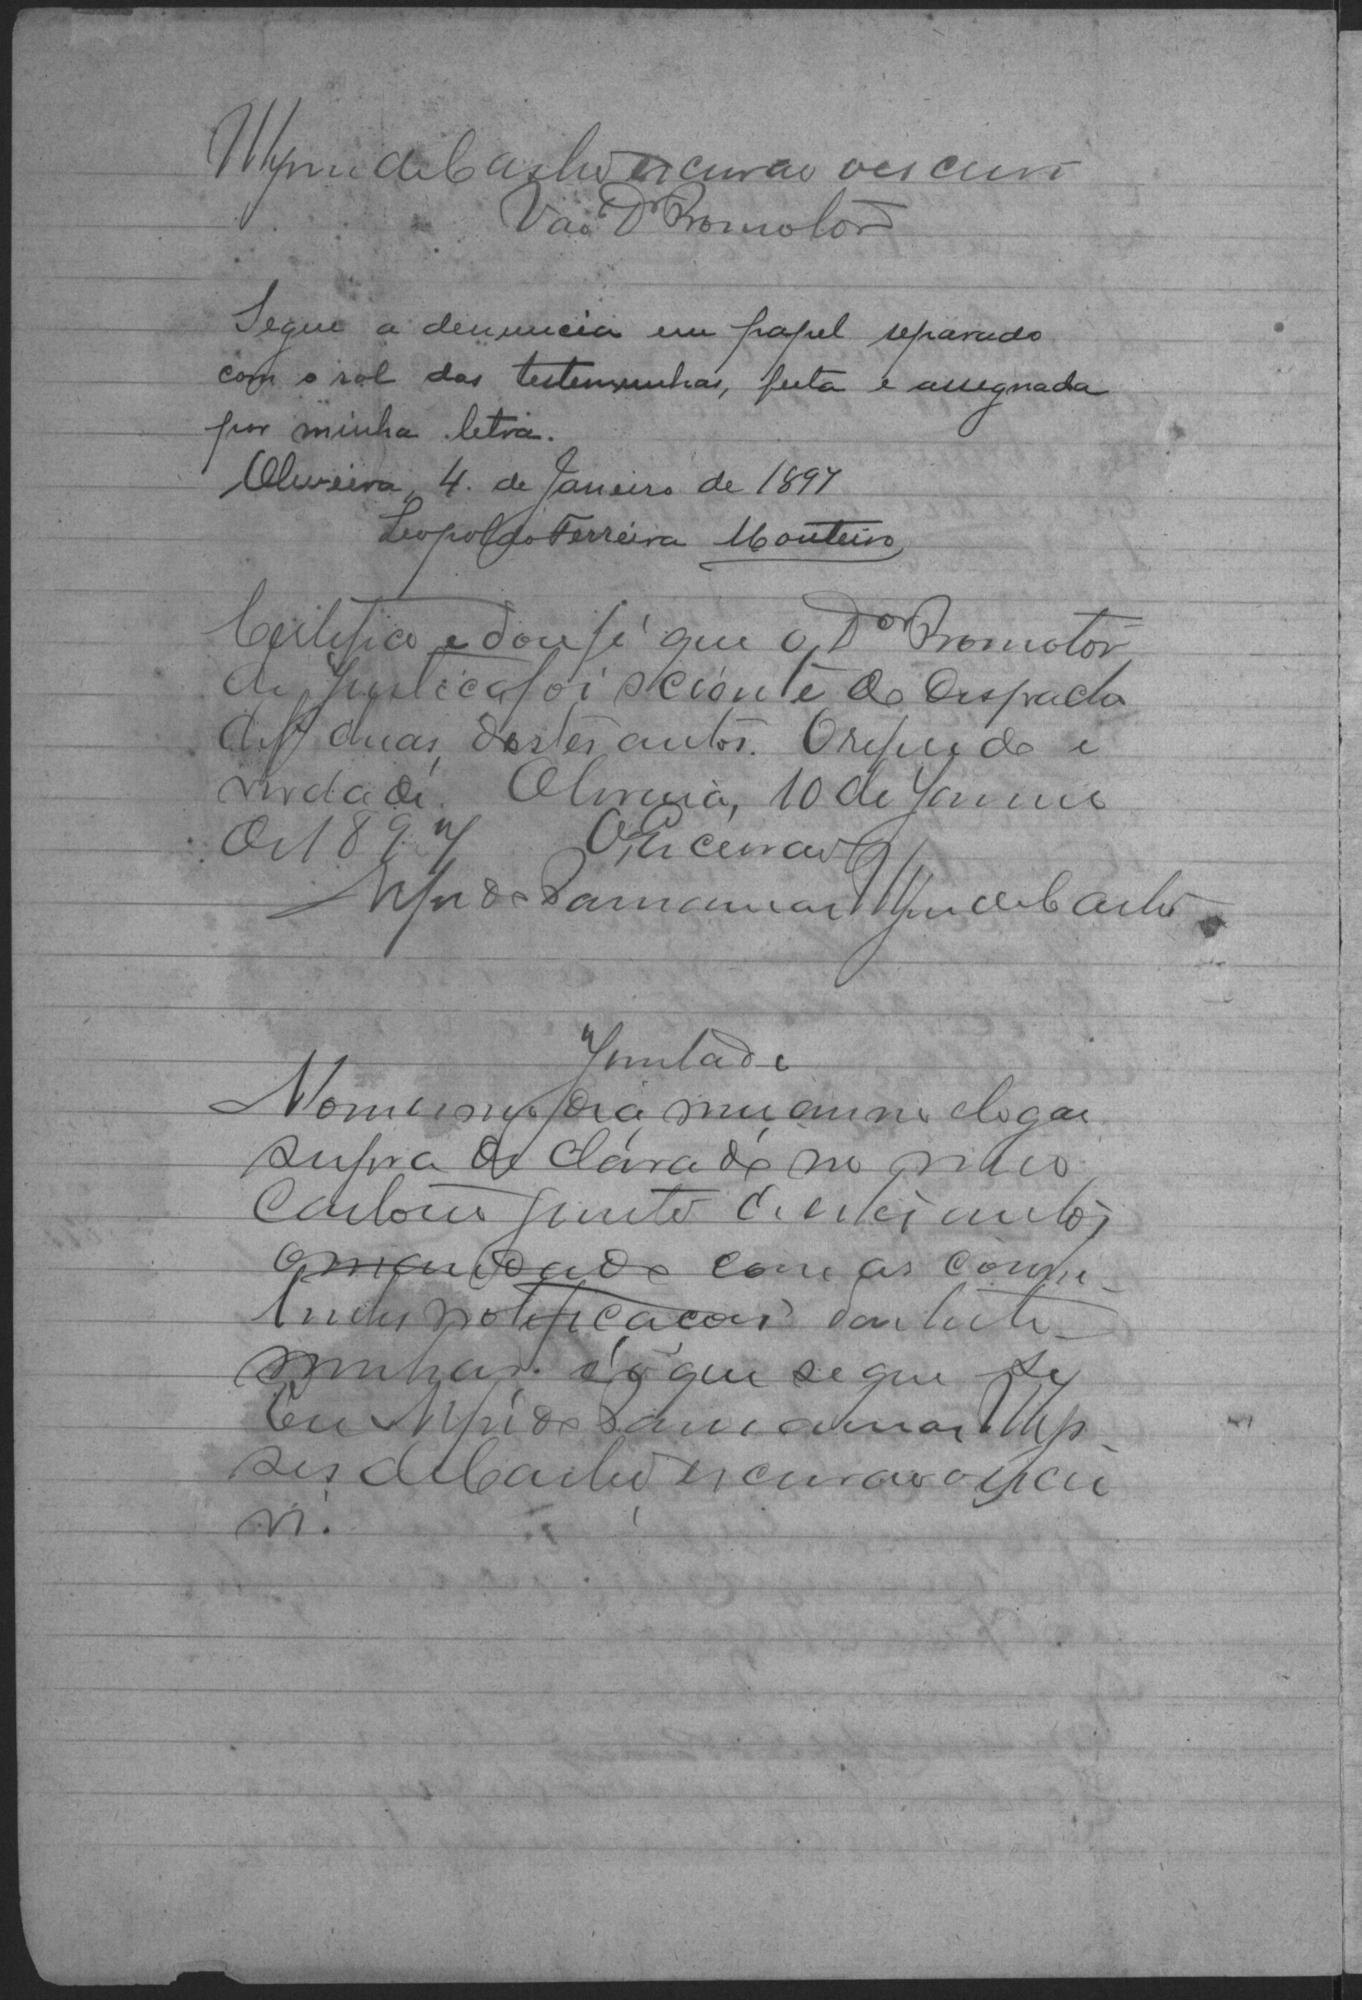 de Castro escrivão o escrevi
Vão Dr Promotor
Segue a denuncia em papel separado
com o rol das testemunhas, feita e assegnada
por minha letra.
Oliveira, 4. de Janeiro de 1897
Leopoldo Ferreira Monteiro
Certifico e dou fé que o Dor Promotor
de Justica foi sciente do despacho
de fl duas, destes autos. O referido e
verdade. Oliveira, 10 de Janeiro
de 1897 O Escrivão
de Castro
Juntada
No mesmo dia mez anno e logar
supra declarado no meu
Cartorio junto a estes autos
o mandado com as compe-
tentes notificacoes das teste-
munhas. é o que se segue
Eu
de Castro escrivão o escre
vi.